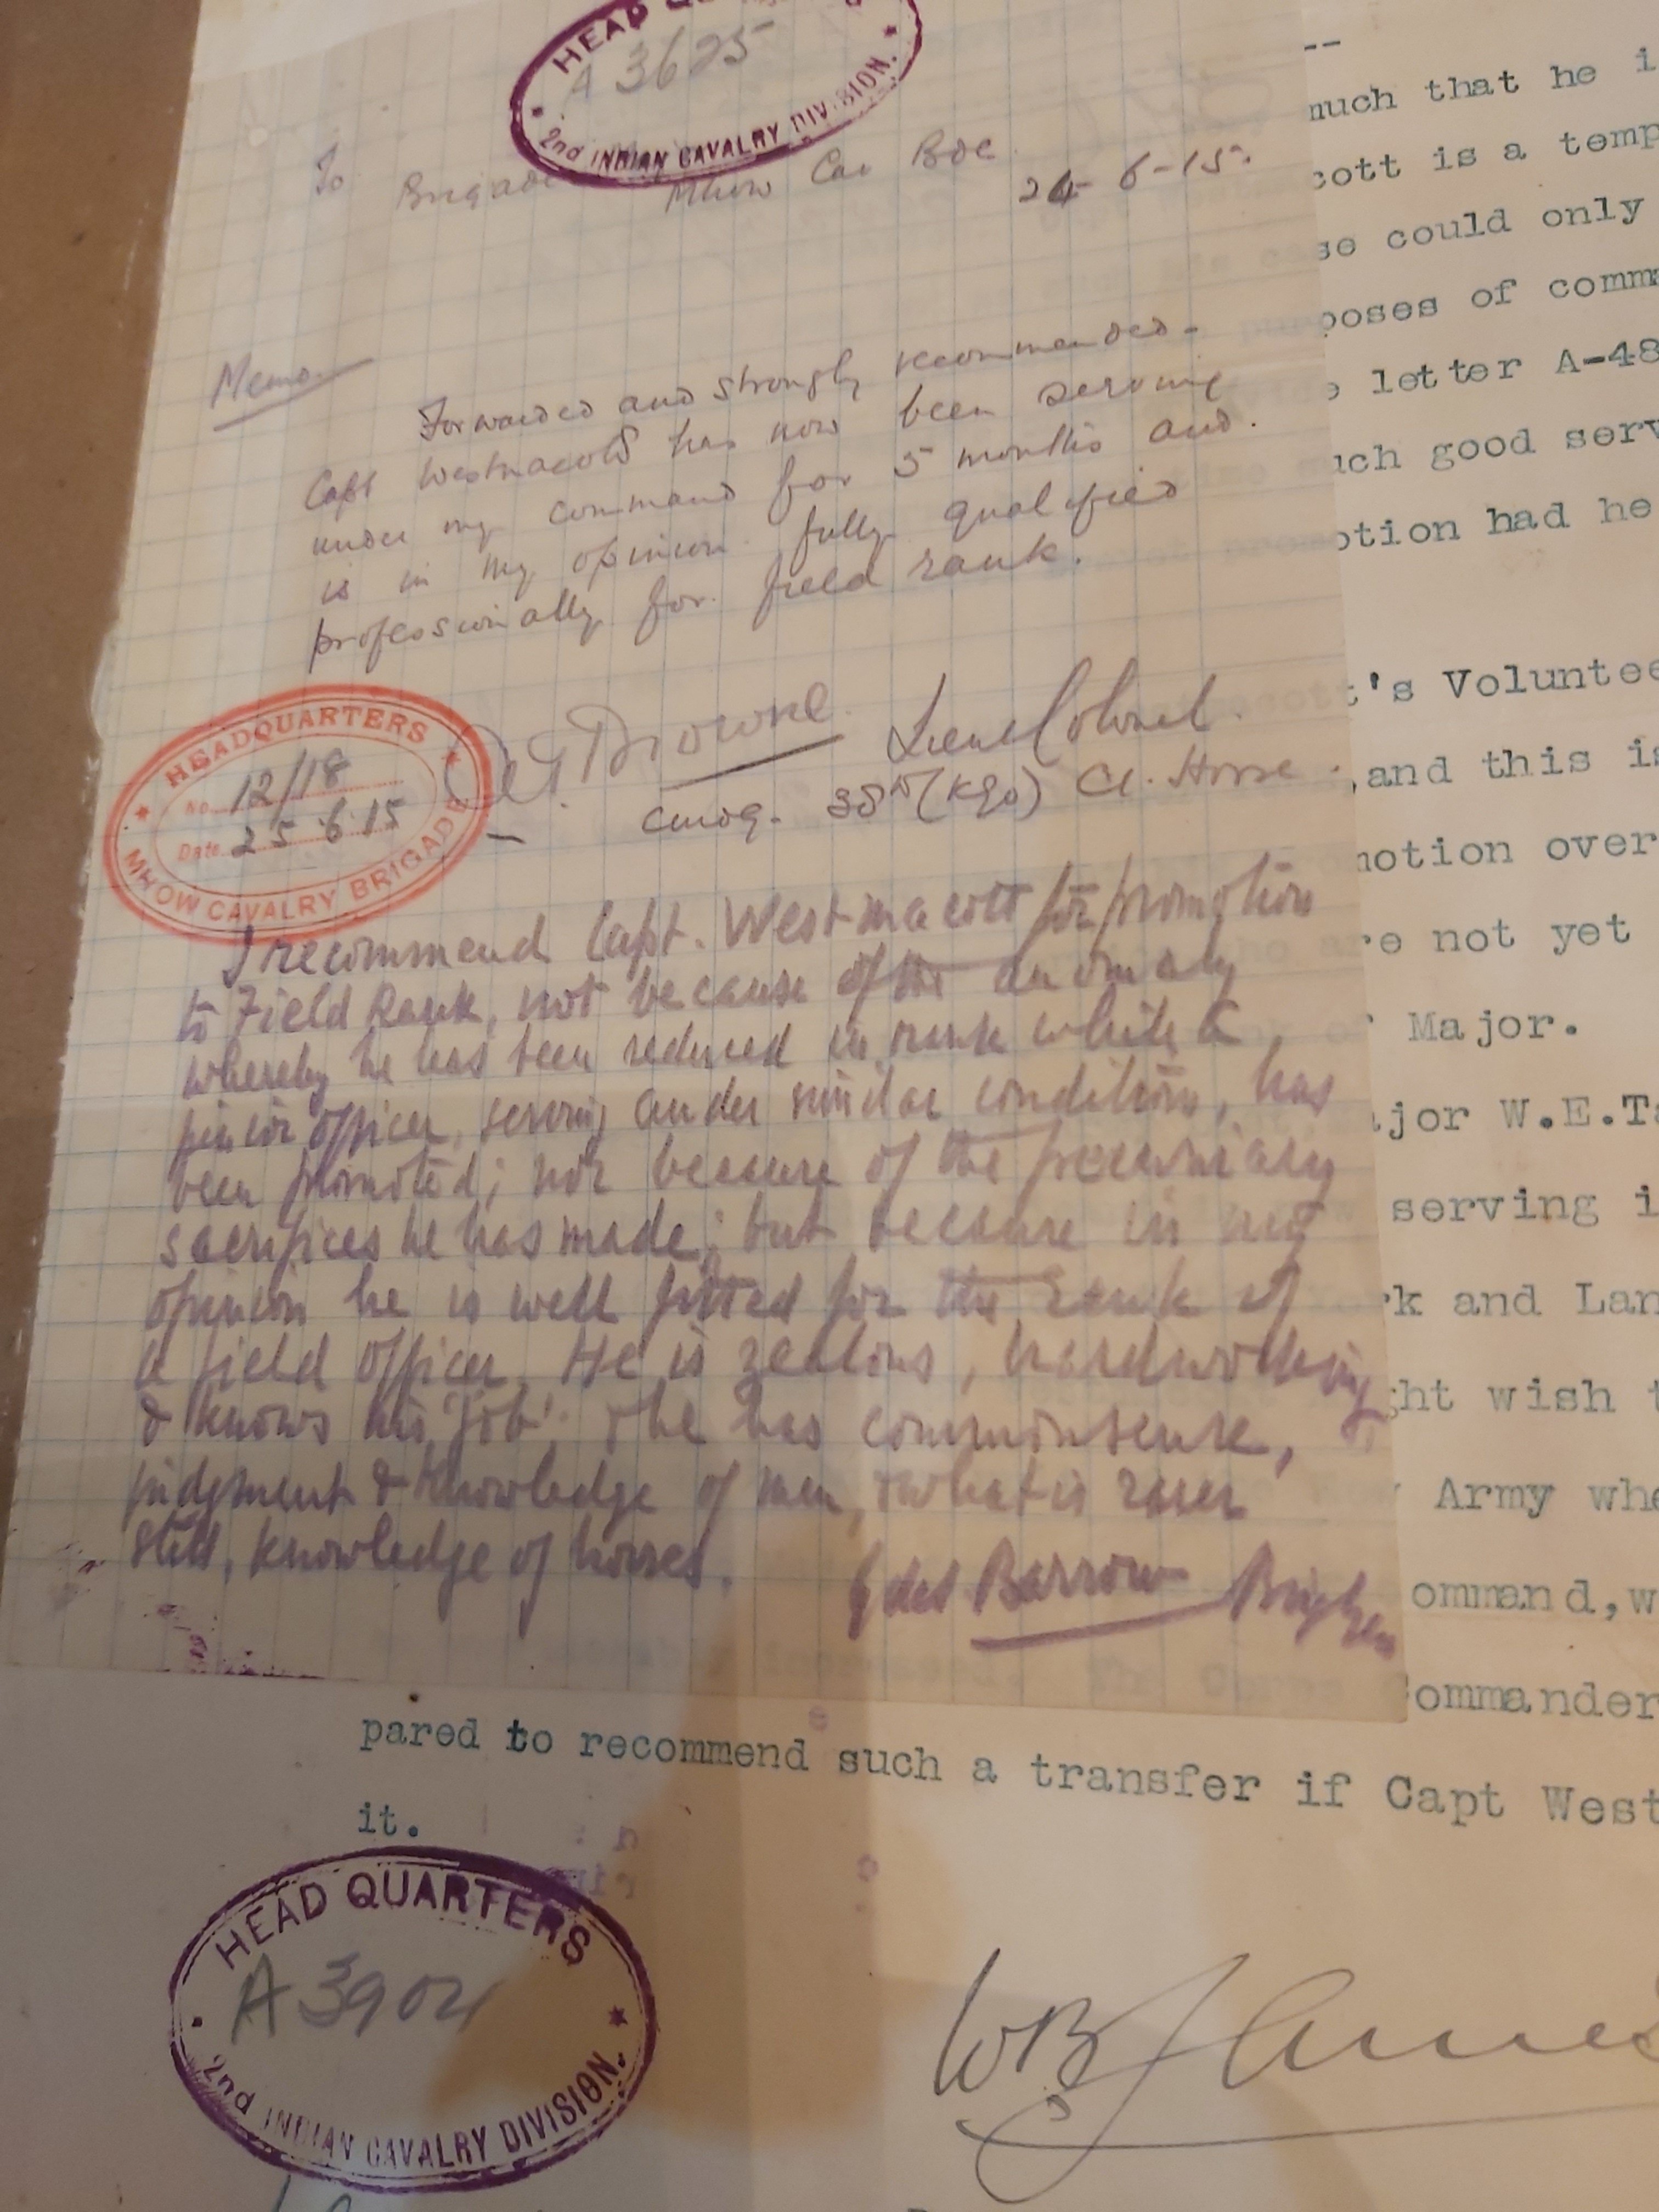 HEAD
A 3625
2nd INDIAN CAVALRY DIVISION.
To Brigade Mhow Cav Bde
24-6-15.
Memo.
Forwarded and strongly recommended-
Capt Westmacott has now been serving
under my command for 5 months and.
is in my opinion fully qualified
professionally for field rank.
Browne Lieut Colonel.
Cmdg. 38th (KGO) C.I. Horse.
HEADQUARTERS
No. 12/18
Date 25.6.15
MHOW CAVALRY BRIGADE
I recommend Capt. Westmacott for promotion
to Field Rank, not because of the anomaly
whereby he has been reduced in rank while a
junior officer, serving under similar conditions, has
been promoted; nor because of the pecuniary
sacrifices he has made; but because in my
opinion he is well fitted for the rank of
a field officer. He is zealous, hardworking
& knows his 'job'. He has commonsense,
judgment & knowledge of men, & what is rarer
still, knowledge of horses.
Barrow Brig Gen
--
much that he i
cott is a temp
se could only
poses of comma
letter A-48
uch good serv
otion had he
t's Voluntee
,and this is
motion over
re not yet
Major.
ajor W.E.Ta
serving i
rk and Lan
ght wish t
Army whe
ommand,w
Commander
pared to recommend such a transfer if Capt West
it.
HEAD QUARTERS
A 3904
2nd INDIAN CAVALRY DIVISION.
WB James